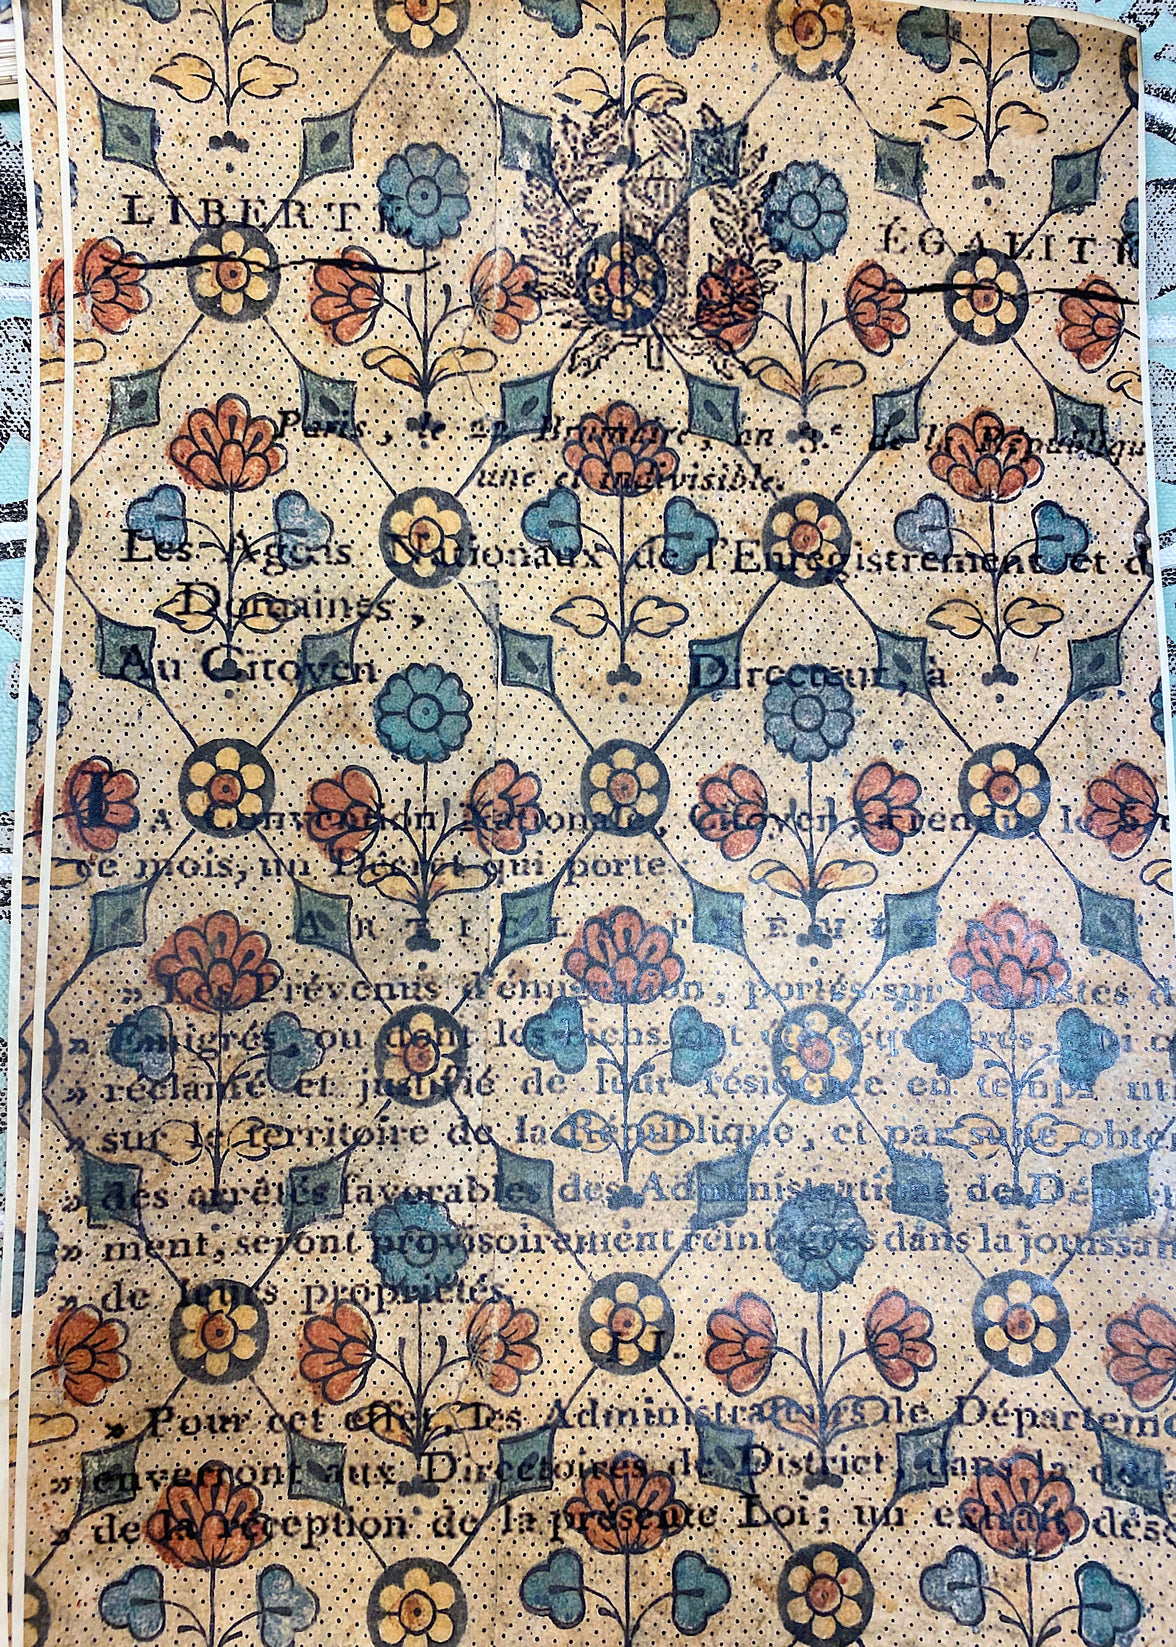 LIBERTÉ ÉGALITÉ
Paris, le 22 Brumaire, an 3e de la République
une et indivisible.
Les Agens Nationaux de l'Enregistrement et d
Domaines,
Au Citoyen Directeur, à
LA Convention Nationale, Citoyen, a rendu le
ce mois, un Décret qui porte :
ARTICLE PREMIER
» Les Prévenus d'émigration, portés sur les listes d
» Émigrés, ou dont les biens ont été séquestrés, qui
» réclamé et justifié de leur résidence en temps ut
» sur le territoire de la République, et par suite obte
» des arrêtés favorables des Administrations de Dépar
» ment, seront provisoirement réintégrés dans la jouissan
» de leurs propriétés.
II.
» Pour cet effet, les Administrateurs de Départeme
» enverront aux Directoires de District, dans la
» de la réception de la présente Loi; un extrait